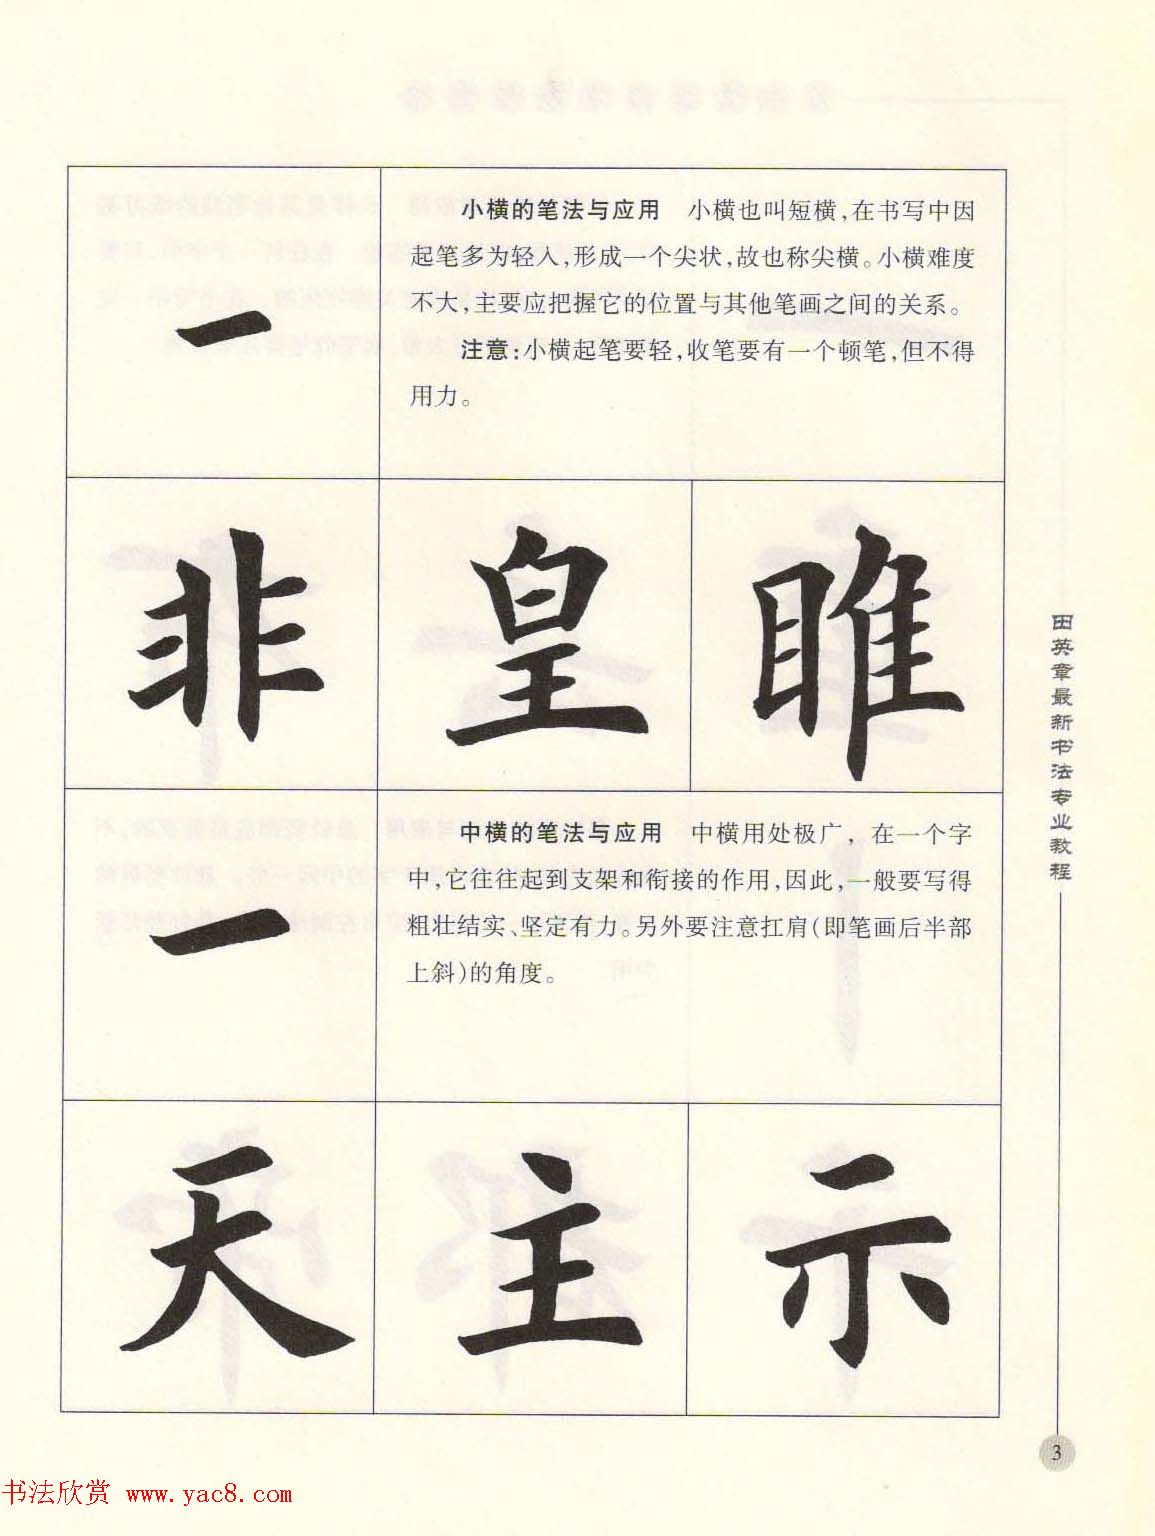 一
小横的笔法与应用 小横也叫短横，在书写中因
起笔多为轻入，形成一个尖状，故也称尖横。小横难度
不大，主要应把握它的位置与其他笔画之间的关系。
注意：小横起笔要轻，收笔要有一个顿笔，但不得
用力。
非 皇 睢
一
中横的笔法与应用 中横用处极广，在一个字
中，它往往起到支架和衔接的作用，因此，一般要写得
粗壮结实、坚定有力。另外要注意扛肩（即笔画后半部
上斜）的角度。
天 主 示
田英章最新书法专业教程
3
书法欣赏 www.yac8.com